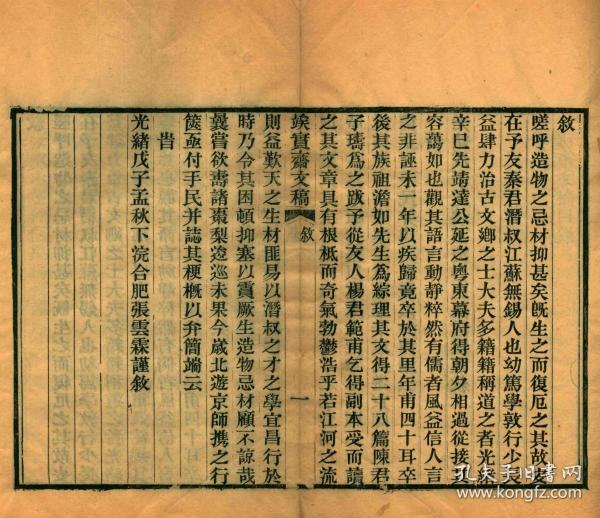 敘
嗟呼造物之忌材抑甚矣旣生之而復厄之其故安
在予友秦君潛叔江蘇無錫人也幼篤學敦行少長
益肆力治古文鄉之士大夫多籍籍稱道之者光緒
辛巳先靖達公延之粵東幕府得朝夕相過從接其
容藹如也觀其語言動靜粹然有儒者風益信人言
之非誣未一年以疾歸竟卒於其里年甫四十耳卒
後其族祖澹如先生爲綜理其文得二十八篇陳君
子璹爲之跋予從友人楊君範甫乞得副本受而讀
之其文章具有根柢而奇氣勃鬱浩乎若江河之流
俟實齋文稿 敘 一
則益歎天之生材匪易以潛叔之才之學宜昌行於
時乃令其困頓抑塞以賫厥生造物忌材顧不諒哉
曩嘗欲壽諸棗梨逡巡未果今歲北遊京師携之行
篋亟付手民并誌其梗概以弁簡端云
旹
光緒戊子孟秋下浣合肥張雲霖謹敘
孔夫子旧书网
www.kongfz.com